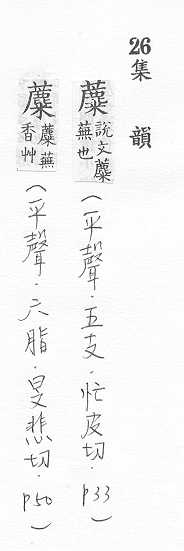 26集韻
蘪 說文蘪蕪也(平聲.五支.忙皮切.P33)
蘪 蘪蕪香艸(平聲.六脂.旻悲切.P50)